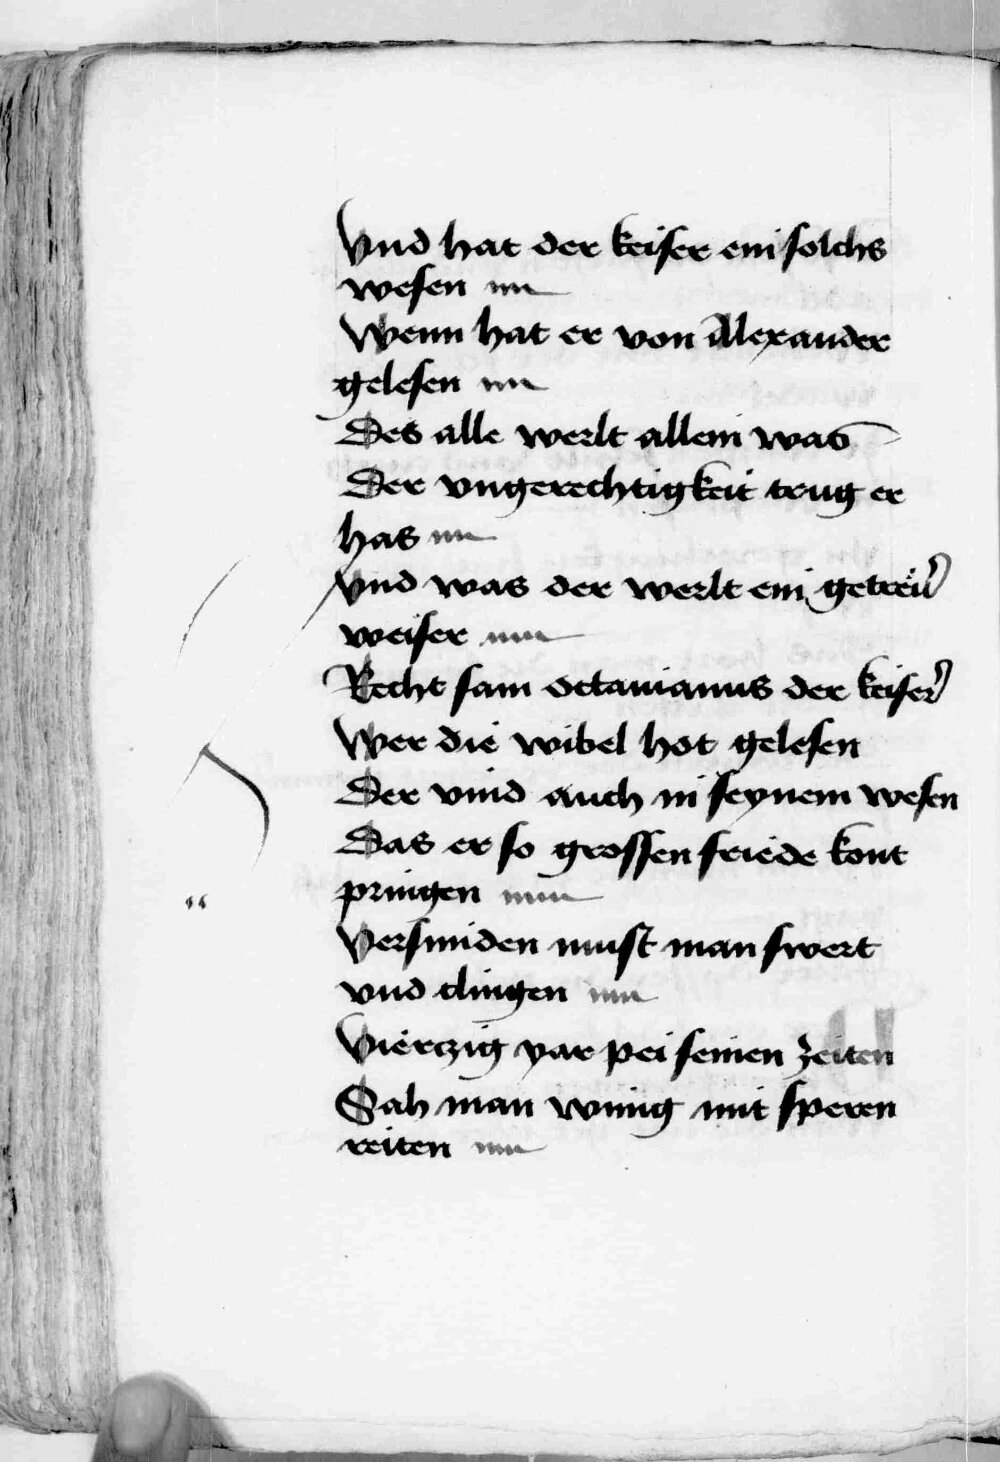 Vnd hat der keiser ein solchs
wesen
Wenn hat er von Alexander
gelesen
Des alle werlt allein was
Der vngerechtigkeit trug er
has
Vnd was der werlt ein getreẅr
weiser
Recht sam octauianus der keiser
Wer die wibel hot gelesen
Der vind auch in seynem wesen
Das er so grossen friede kont
pringen
Versmiden must man swert
vnd clingen
Vierczig yar pei seinen zeiten
Sah man winig mit speren
reiten